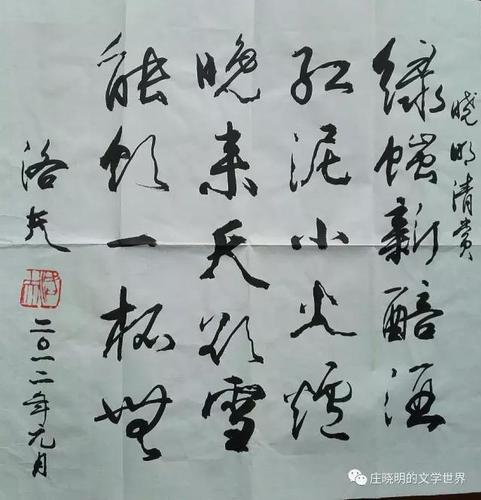 晓明清赏
绿蟻新醅酒
红泥小火爐
晚来天欲雪
能飲一杯無
洛夫
二〇一二年元月
庄晓明的文学世界